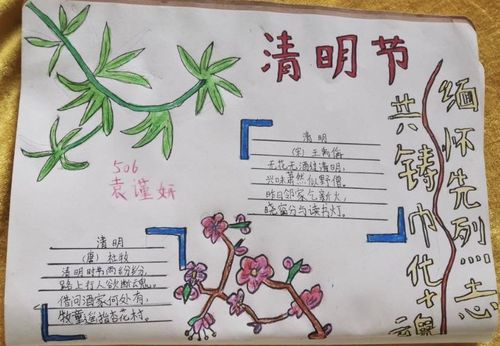 清明节
缅怀先烈志
共铸巾代魂
506
袁谨妍
清明
(宋) 王禹偁
无花无酒过清明,
兴味萧然似野僧。
昨日邻家乞新火,
晓窗分与读书灯。
清明
(唐) 杜牧
清明时节雨纷纷,
路上行人欲断魂。
借问酒家何处有,
牧童遥指杏花村。